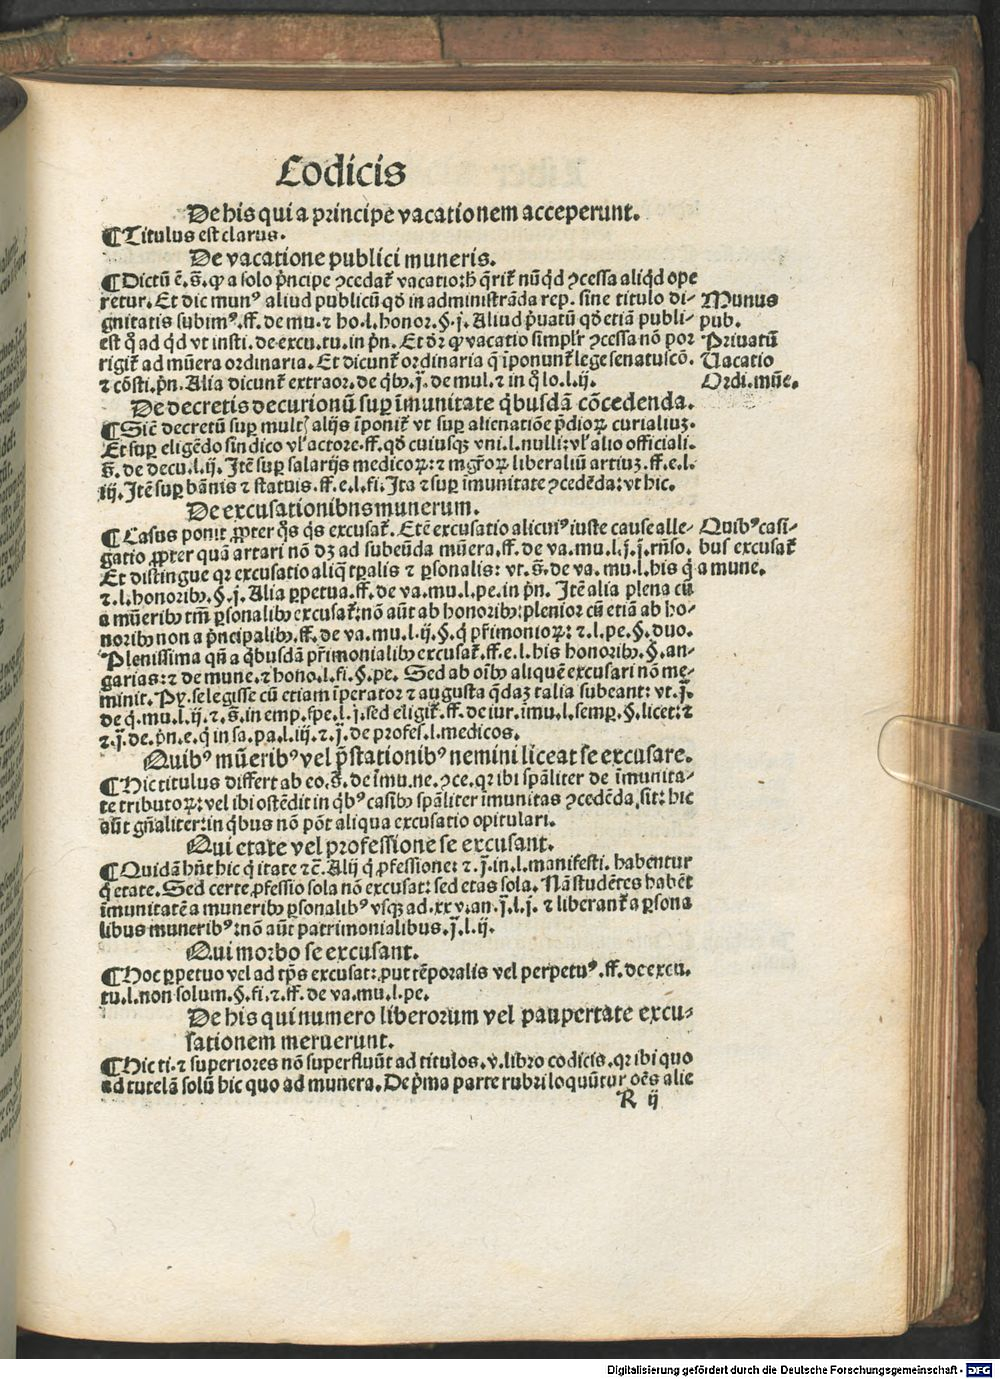 Codicis
De his qui a principe vacationem acceperunt.
¶ Titulus est clarus.
De vacatione publici muneris.
¶ Dictū ē.s̄. ꝙ a solo p̄ncipe ꝯcedat᷑ vacatio: h̄ q̄rit᷑ nūqd ꝯcessa aliqd ope
retur. Et dic munꝰ aliud publicū qd̄ in administrāda rep. sine titulo di⸗
gnitatis subimꝰ.ff.de mu.⁊ ho.l.honor.§.j. Aliud p̄uatū qd̄ etiā publi⸗
est q̄ ad qd vt insti.de.excu.tu.in pn̄. Et dr̄ ꝙ vacatio simplr̄ ꝯcessa nō por
rigit᷑ ad mūera ordinaria. Et dicunt᷑ ordinaria q̄ īponunt᷑ lege senatuscō.
⁊ cōsti.pn̄. Alia dicunt᷑ extraor.de qb̄ꝫ.j̄.de mul.⁊ in q̄ lo.l.ij.
Munus
pub.
Privatū
Vacatio
Ordi.mūe.
De decretis decurionū sup īmunitate qbusdā cōcedenda.
¶ Sic̄ decretū sup mult᷑ alijs īponit᷑ vt sup alienatiōe p̄dioꝝ curialiuꝫ.
Et sup eligēdo sindico vl̓ actore.ff.qd̄ cuiusqꝫ vni.l.nulli: vl̓ alio officiali.
s̄.de decu.l.ij. Itē sup salarijs medicoꝝ: ⁊ mgr̄oꝝ liberaliū artiuꝫ.ff.e.l.
iij. Itē sup bānis ⁊ statuis.ff.e.l.fi. Ita ⁊ sup īmunitate ꝯcedēda: vt hic.
De excusationibns munerum.
¶ Casus ponit ꝓpter qōs qs excusat᷑. Etē excusatio alicuiꝰ iuste cause alle⸗
gatio ꝓpter quā artari nō dꝫ ad subeūda mūera.ff.de va.mu.l.j̄.j̄.rn̄so.
Et distingue qꝛ excusatio aliq tꝑalis ⁊ ꝑsonalis: vt.s̄.de va.mu.l.his q̇
⁊.l.honoribꝫ.§.j. Alia ꝑpetua.ff.de va.mu.l.pe.in pn̄. Itē alia plena cū
a mūeribꝫ tm̄ ꝑsonalibꝫ excusat᷑: nō aūt ab honoribꝫ: plenior cū etiā ab ho⸗
noribꝫ non a p̄ncipalibꝫ.ff.de va.mu.l.ij.§.q̇ pr̄imonioꝝ: ⁊.l.pe.§.duo.
Plenissima qn̄ a qbusdā pr̄imonialibꝫ excusat᷑.ff.e.l.his honoribꝫ.§.an⸗
garias: ⁊ de mune.⁊ hono.l.fi.§.pe. Sed ab oībꝫ aliquē excusari nō me⸗
minit. Py.se legisse cū etiam īperator ⁊ augusta qdaꝫ talia subeant: vt.j̄.
de q̇.mu.l.ij.⁊.s̄.in emp.spe.l.j.sed eligit᷑.ff.de iur.imu.l.semp.§.licet: ⁊
⁊.j̄.de.pn̄.e.q̇ in sa.pa.l.iij.⁊.j̄.de profes.l.medicos.
Quibꝰ casi⸗
bus excusat᷑
a mune.
Quibꝰ mūeribꝰ vel p̄stationibꝰ nemini liceat se excusare.
¶ Hic titulus differt ab eo.s̄.de īmu.ne.ꝯce.qꝛ ibi spāliter de īmunita⸗
te tributoꝝ: vel ibi ostēdit in qbꝰ casibꝫ spāliter imunitas ꝯcedēda sit: hic
aūt gn̄aliter: in qbus nō pōt aliqua excusatio opitulari.
Qui etate vel professione se excusant.
¶ Quidā hn̄t hic q̇ itate ⁊c̄. Alij q̇ ꝓfessione: ⁊.j̄.in.l.manifesti.habentur
q̇ etate. Sed certe ꝓfessio sola nō excusat: sed etas sola. Nā studētes habēt
īmunitatē a muneribꝫ ꝑsonalibꝰ vsqꝫ ad.xxv.an.j̄.l.j.⁊ liberant᷑ a ꝑsona
libus muneribꝰ: nō aūt patrimonialibus.j̄.l.ij.
Qui morbo se excusant.
¶ Hoc ꝑpetuo vel ad tp̄s excusat: put tēporalis vel perpetuꝰ.ff.de excu.
tu.l.non solum.§.fi.⁊.ff.de va.mu.l.pe.
De his qui numero liberorum vel paupertate excu⸗
sationem meruerunt.
¶ Hic ti.⁊ superiores nō superfluūt ad titulos.v.libro codicis.qꝛ ibi quo
ad tutelā solū hic quo ad munera. De p̄ma parte rubri loquūtur oēs alie
R ij
Digitalisierung gefördert durch die Deutsche Forschungsgemeinschaft - DFG